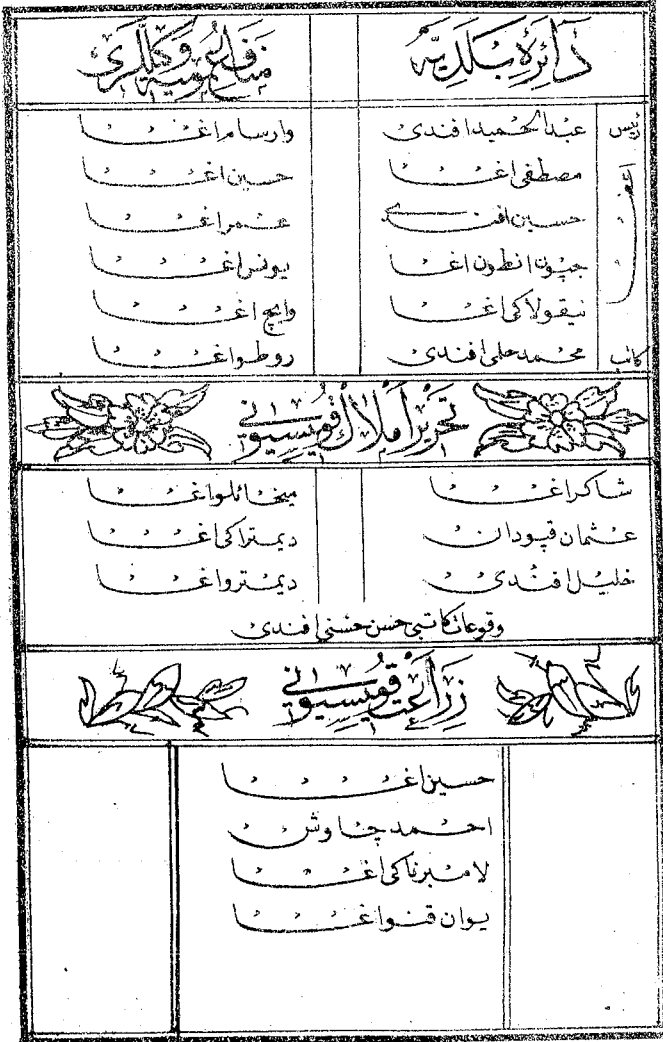 دائرهٔ بلدیه
رئیس عبدالحمید افندی
اعضا
مصطفی اغا
حسین افندی
انطون اغا
نیقولاکی اغا
کاتب محمد حلمی افندی
منافع عمومیه وکیللری
وارسام اغا
حسین اغا
عمر اغا
یونس اغا
اغا
اغا
تحریر املاک قومیسیونی
شاکر اغا
عثمان قپودان
خلیل افندی
میخائلو اغا
دیمتراکی اغا
دیمترو اغا
وقوعات کاتبی حسن حسنی افندی
زراعت قومیسیونی
حسین اغا
احمد چاوش
لامبرناکی اغا
یوان قنو اغا